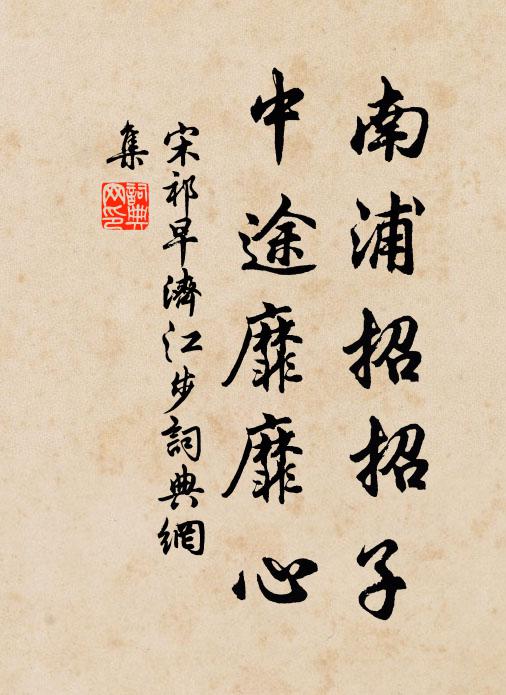 南浦招招子
中途靡靡心
宋祁早濟江步詞典網
集
詞典
网印